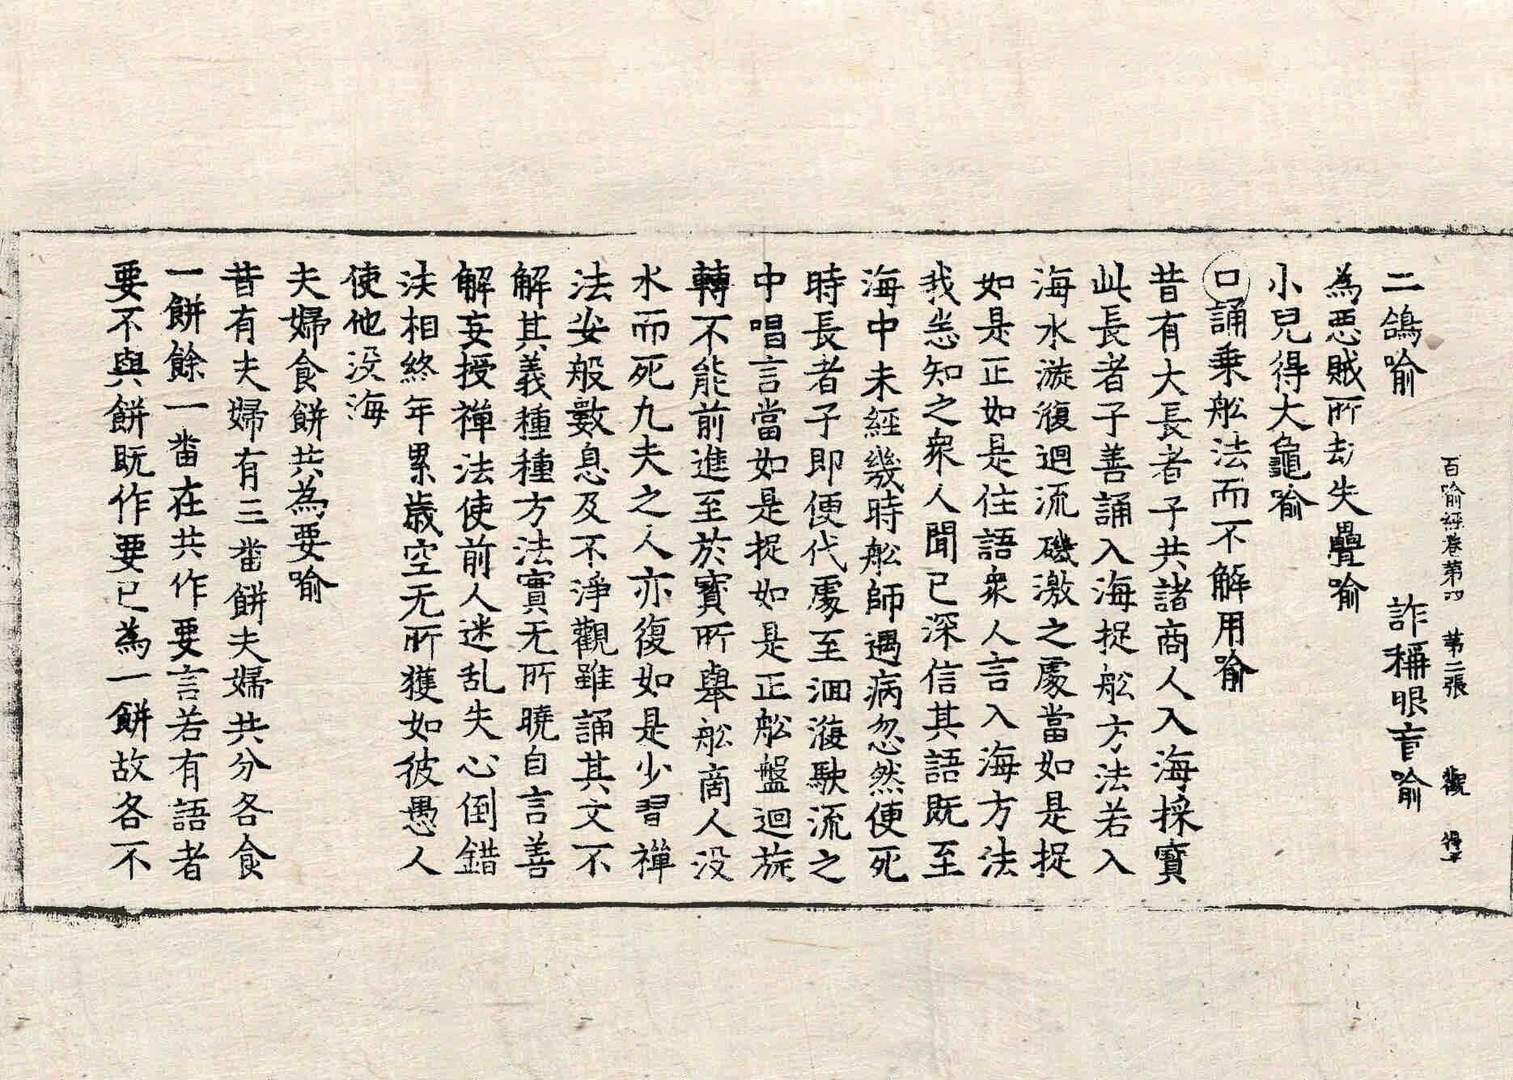 百喻經卷第四　第二張　觀
二鴿喻　詐稱眼盲喻
為惡賊所刼失㲲喻
小兒得大龜喻
口誦乗舩法而不解用喻
昔有大長者子共諸商人入海採寶
此長者子善誦入海捉舩方法若入
海水漩澓迴流磯激之處當如是捉
如是正如是住語衆人言入海方法
我悉知之衆人聞已深信其語旣至
海中未經幾時舩師遇病忽然便死
時長者子即便代處至洄澓駛流之
中唱言當如是捉如是正舩盤迴旋
轉不能前進至於寶所舉舩商人没
水而死凡夫之人亦復如是少習禪
法安般數息及不淨觀雖誦其文不
解其義種種方法實无所曉自言善
解妄授禪法使前人迷乱失心倒錯
法相終年累歲空无所獲如彼愚人
使他没海
夫婦食餅共為要喻
昔有夫婦有三番餅夫婦共分各食
一餅餘一番在共作要言若有語者
要不與餅旣作要已為一餅故各不